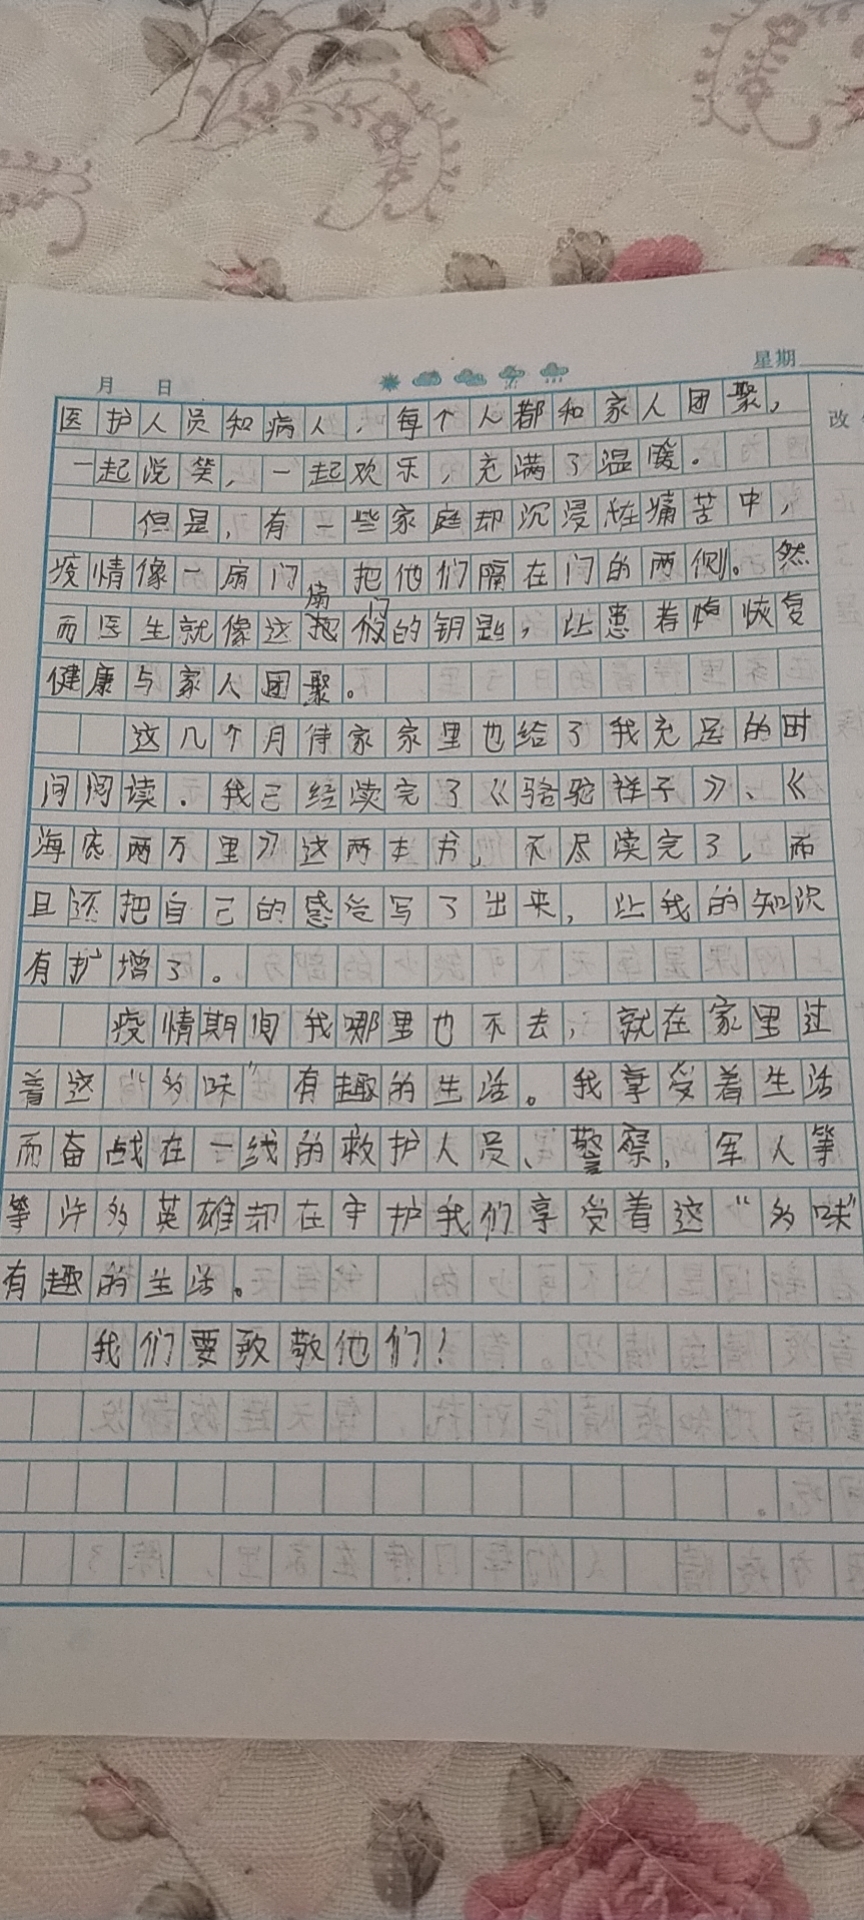 月 日
星期
改
医护人员和病人，每个人都和家人团聚，
一起说笑，一起欢乐，充满了温暖。
但是，有一些家庭却沉浸在痛苦中，
疫情像一扇门 把他们隔在门的两侧。然
扇 门
而医生就像这把的钥匙，让患者恢复
健康与家人团聚。
这几个月待家家里也给了我充足的时
间阅读．我已经读完了《骆驼祥子》、《
海底两万里》这两本书，不尽读完了，而
且还把自己的感受写了出来，让我的知识
有扩增了。
疫情期间我哪里也不去，就在家里过
着这“多味”有趣的生活。我享受着生活
而奋战在一线的救护人员、警察，军人等
等许多英雄却在守护我们享受着这“多味”
有趣的生活。
我们要致敬他们！